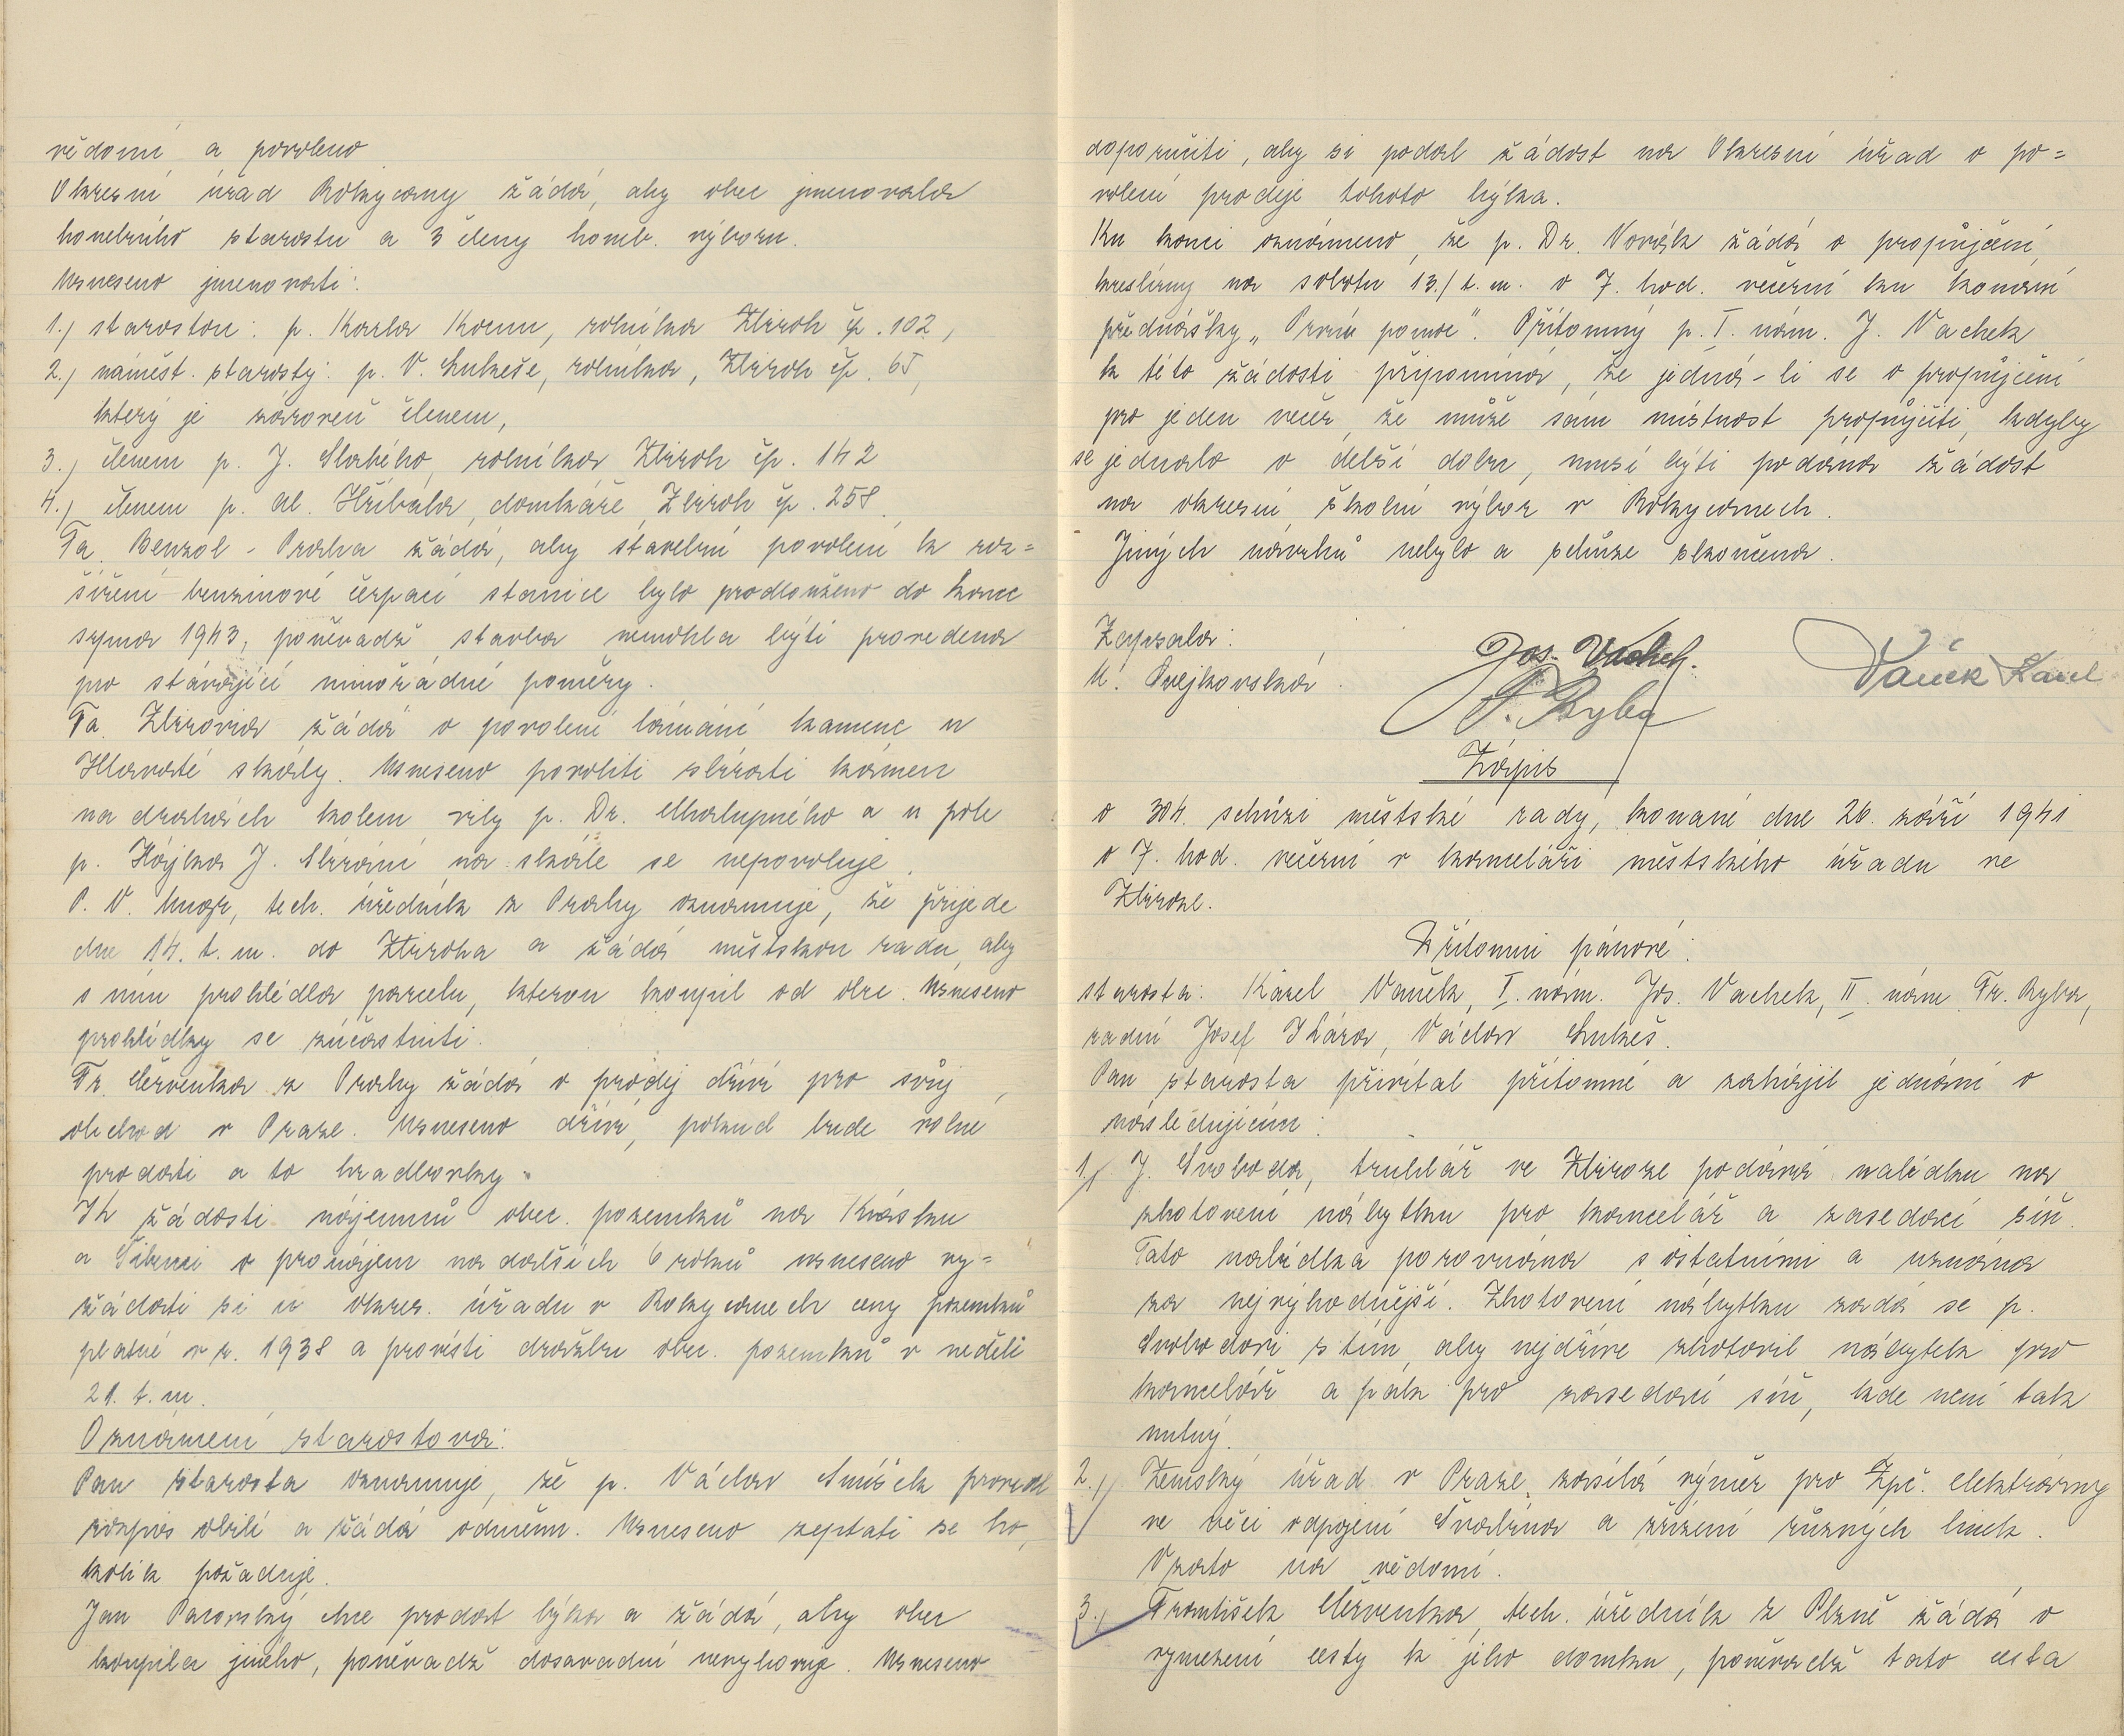 vědomí a povoleno
Okresní úřad Rokycany žádá, aby obec jmenovala
honebního starostu a 3 členy honeb. výboru.
Usneseno jmenovati:
1./ starostou: p. Karla Kornu, rolníka Zbiroh čp. 102,
2./ náměst. starosty: p. V. Lukeše, rolníka, Zbiroh čp. 65,
který je zároveň členem,
3./ členem p. J. Slabého, rolníka Zbiroh čp. 142
4./ členem p. Al. Hříbala, domkáře, Zbiroh čp. 258.
Fa. Benzol - Praha žádá, aby stavební povolení k roz=
šíření benzinové čerpací stanice bylo prodlouženo do konce
srpna 1943, poněvadž stavba nemohla býti provedena
pro stávající mimořádné poměry.
Fa. Zbirovia žádá o povolení lámání kamene u
Hlavaté skály. Usneseno povoliti sbírati kámen
na drahách kolem vily p. Dr. Chalupného a u pole
p. Hájka J. Sbírání na skále se nepovoluje.
P. V. Unger, tech. úředník z Prahy oznamuje, že přijede
dne 14. t. m. do Zbiroha a žádá městskou radu, aby
s ním prohlédla parcelu, kterou koupil od obce. Usneseno
prohlídky se zúčastniti.
Fr. Červenka z Prahy žádá o prodej dříví pro svůj
obchod v Praze. Usneseno dříví, pokud bude volné
prodati a to hradlovky.
Ih žádosti nájemců obec. pozemků na Krásku
a Šibenci o pronájem na dalších 6 roků usneseno vy=
žádati si u okres. úřadu v Rokycanech ceny pozemků
platné v r. 1938 a provésti dražbu obec. pozemků v neděli
21. t. m.
Oznámení starostova:
Pan starosta oznamuje, že p. Václav Smíšek provedl
rozpis obilí a žádá odměnu. Usneseno zeptati se ho,
kolik požaduje.
Jan Pacovský chce prodat býka a žádá, aby obec
koupila jiného, poněvadž dosavadní nevyhovuje. Usneseno
doporučiti, aby si podal žádost na Okresní úřad o po=
volení prodeje tohoto býka.
Ku konci oznámeno, že p. Dr. Novák žádá o propůjčení
kreslírny na sobotu 13./ t. m. o 7. hod. večerní ku konání
přednášky „První pomoc". Přítomný p. I. nám. J. Vachek
k této žádosti připomíná, že jedná-li se o propůjčení
pro jeden večer, že může sám místnost propůjčiti, kdyby
se jednalo o delší dobu, musí býti podána žádost
na okresní školní výbor v Rokycanech.
Jiných návrhů nebylo a schůze skončena.
Zapsala:
M. Svejkovská.
Jos. Vachek.
F. Ryba
Vaněk Karel
Zápis
o 304. schůzi městské rady, konané dne 26. září 1941
o 7. hod. večerní v kanceláři městského úřadu ve
Zbiroze.
Přítomni pánové:
starosta: Karel Vaněk, I. nám. Jos. Vachek, II. nám Fr. Ryba,
radní Josef Škára, Václav Lukeš.
Pan starosta přivítal přítomné a zahájil jednání o
následujícím:
1./ J. Svoboda, truhlář ve Zbiroze podává nabídku na
zhotovení nábytku pro kancelář a zasedací síň.
Tato nabídka porovnána s ostatními a uznána
za nejvýhodnější. Zhotovení nábytku zadá se p.
Svobodovi s tím, aby nejdříve zhotovil nábytek pro
kancelář a pak pro zasedací síň, kde není tak
nutný.
2./ Zemský úřad v Praze zasílá výměr pro Zpč. elektrárny
ve věci odpojení Švabína a zřízení různých linek.
Vzato na vědomí.
3./ František Červenka, tech. úředník z Plzně žádá o
vymezení cesty k jeho domku, poněvadž tato cesta